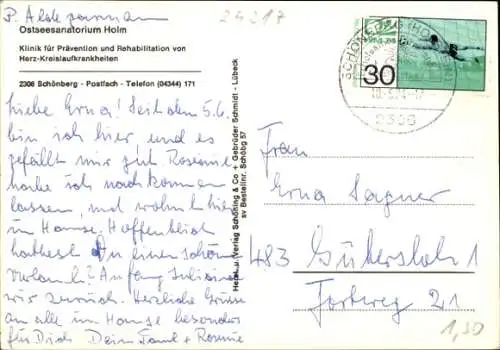 24217
Ostseesanatorium Holm
Klinik für Prävention und Rehabilitation von
Herz-Kreislaufkrankheiten
2306 Schönberg - Postfach - Telefon (04344) 171
Liebe Erna! Seit dem 5.6.
bin ich hier und es
gefällt mir gut.
habe ich nachkommen
lassen, und wohnt hier
im Hause. Hoffentlich
hattest Du einen schönen
Urlaub? Anfang
wir zurück. Herzliche Grüsse
an alle im Hause besonders
für Dich Dein
Herst. u. Verlag Schöning & Co + Gebrüder Schmidt - Lübeck
sv Bestellnr. Schöbg 57
30
2306
Frau
Erna
483 Gütersloh 1
21
1,50